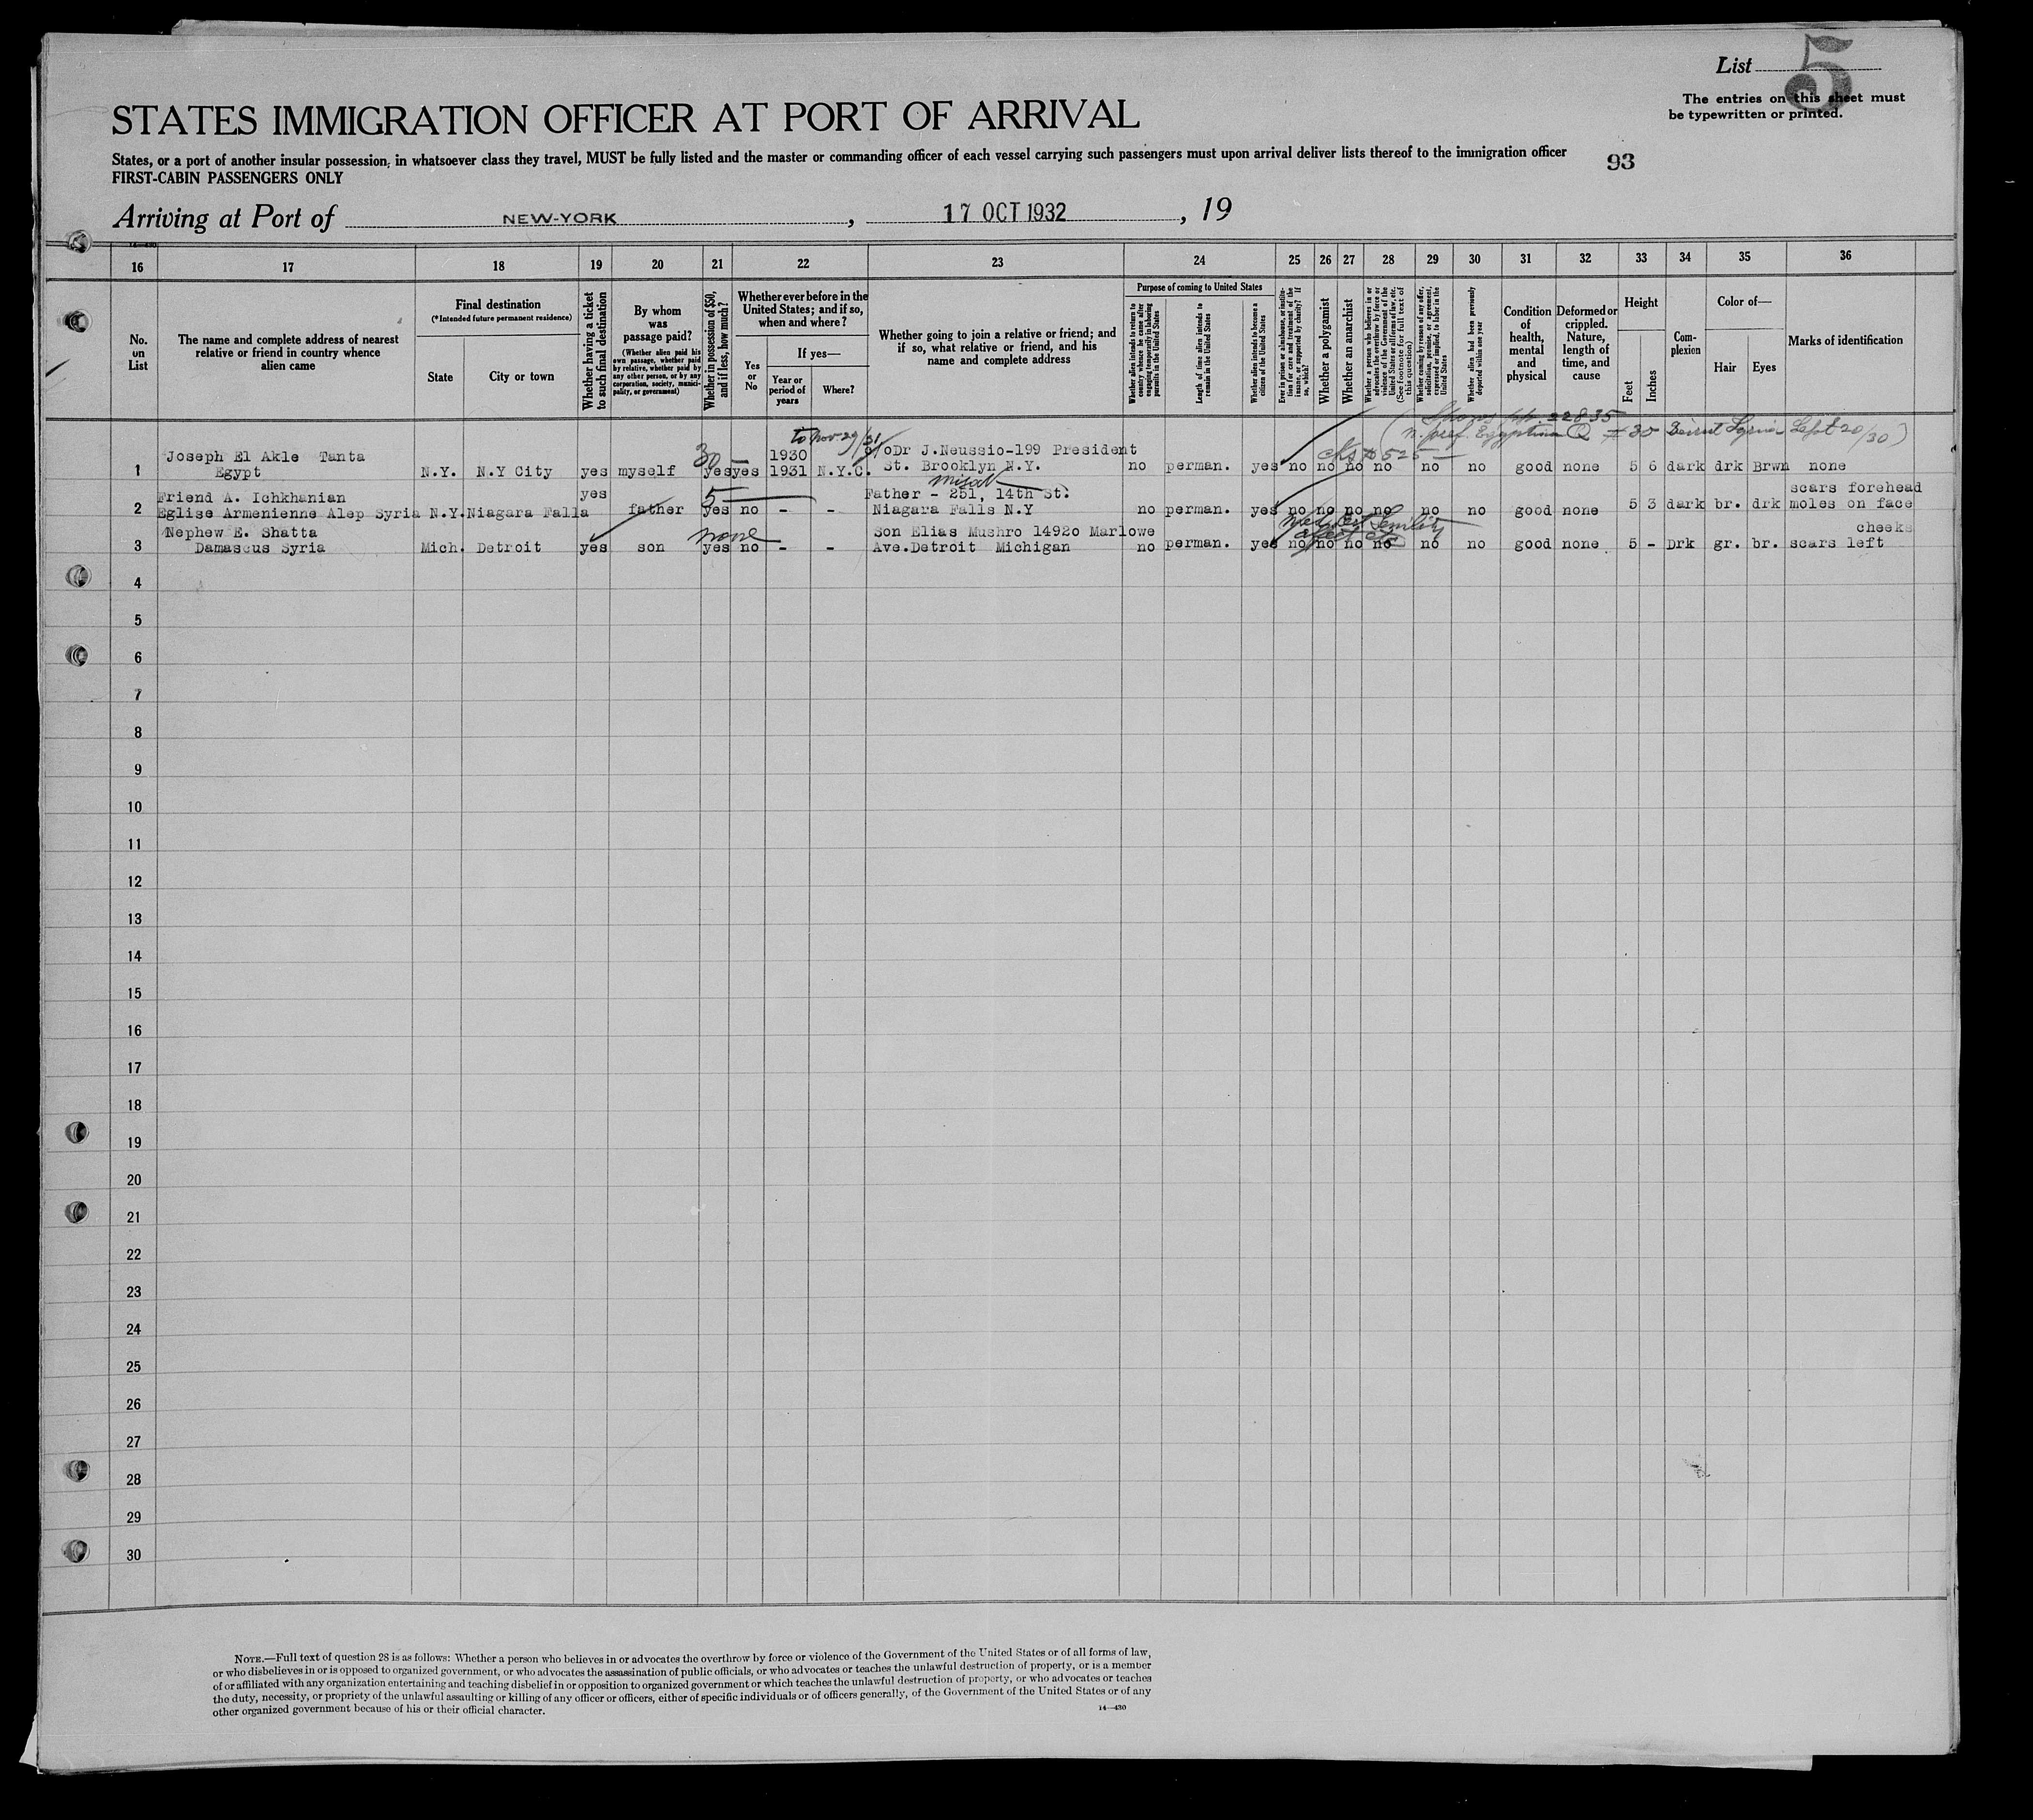 List 5
The entries on this sheet must
be typewritten or printed.
STATES IMMIGRATION OFFICER AT PORT OF ARRIVAL
States, or a port of another insular possession, in whatsoever class they travel, MUST be fully listed and the master or commanding officer of each vessel carrying such passengers must upon arrival deliver lists thereof to the immigration officer
93
FIRST-CABIN PASSENGERS ONLY
Arriving at Port of NEW-YORK, 17 OCT 1932, 19
14—430
16 17 18 19 20 21 22 23 24 25 26 27 28 29 30 31 32 33 34 35 36
No. on List
The name and complete address of nearest relative or friend in country whence alien came
Final destination
(*Intended future permanent residence)
State
City or town
Whether having a ticket to such final destination
By whom was passage paid?
(Whether alien paid his own passage, whether paid by relative, whether paid by any other person, or by any corporation, society, municipality, or government)
Whether in possession of $50, and if less, how much?
Whether ever before in the United States; and if so, when and where?
Yes or No
If yes—
Year or period of years
Where?
Whether going to join a relative or friend; and if so, what relative or friend, and his name and complete address
Purpose of coming to United States
Whether alien intends to return to country whence he came after engaging temporarily in laboring pursuits in the United States
Length of time alien intends to remain in the United States
Whether alien intends to become a citizen of the United States
Ever in prison or almshouse, or institution for care and treatment of the insane, or supported by charity? If so, which?
Whether a polygamist
Whether an anarchist
Whether a person who believes in or advocates the overthrow by force or violence of the Government of the United States or all forms of law, etc. (See footnote for full text of this question)
Whether coming by reason of any offer, solicitation, promise, or agreement, expressed or implied, to labor in the United States
Whether alien had been previously deported within one year
Condition of health, mental and physical
Deformed or crippled. Nature, length of time, and cause
Height
Feet
Inches
Complexion
Color of—
Hair
Eyes
Marks of identification
22835
Egyptian Q # 35 Beirut Syria Sept 20/30)
to Nov 29/31
30 —
Joseph El Akle Tanta 1930 c/oDr J.Neussio-199 President
1 Egypt N.Y. N.Y City yes myself yes yes 1931 N.Y.C. St. Brooklyn N.Y. no perman. yes no no no no no no good none 5 6 dark drk Brwn none
Friend A. Ichkhanian yes 5— Father - 251, 14th St. scars forehead
2 Eglise Armenienne Alep Syria N.Y. Niagara Falla father yes no - - Niagara Falls N.Y no perman. yes no no no no no no good none 5 3 dark br. drk moles on face
Nephew E. Shatta none Son Elias Mushro 14920 Marlowe cheeks
3 Damascus Syria Mich. Detroit yes son yes no - - Ave.Detroit Michigan no perman. yes no no no no no no good none 5 - Drk gr. br. scars left
4
5
6
7
8
9
10
11
12
13
14
15
16
17
18
19
20
21
22
23
24
25
26
27
28
29
30
NOTE.—Full text of question 28 is as follows: Whether a person who believes in or advocates the overthrow by force or violence of the Government of the United States or of all forms of law,
or who disbelieves in or is opposed to organized government, or who advocates the assassination of public officials, or who advocates or teaches the unlawful destruction of property, or is a member
of or affiliated with any organization entertaining and teaching disbelief in or opposition to organized government or which teaches the unlawful destruction of property, or who advocates or teaches
the duty, necessity, or propriety of the unlawful assaulting or killing of any officer or officers, either of specific individuals or of officers generally, of the Government of the United States or of any
other organized government because of his or their official character.
14—430